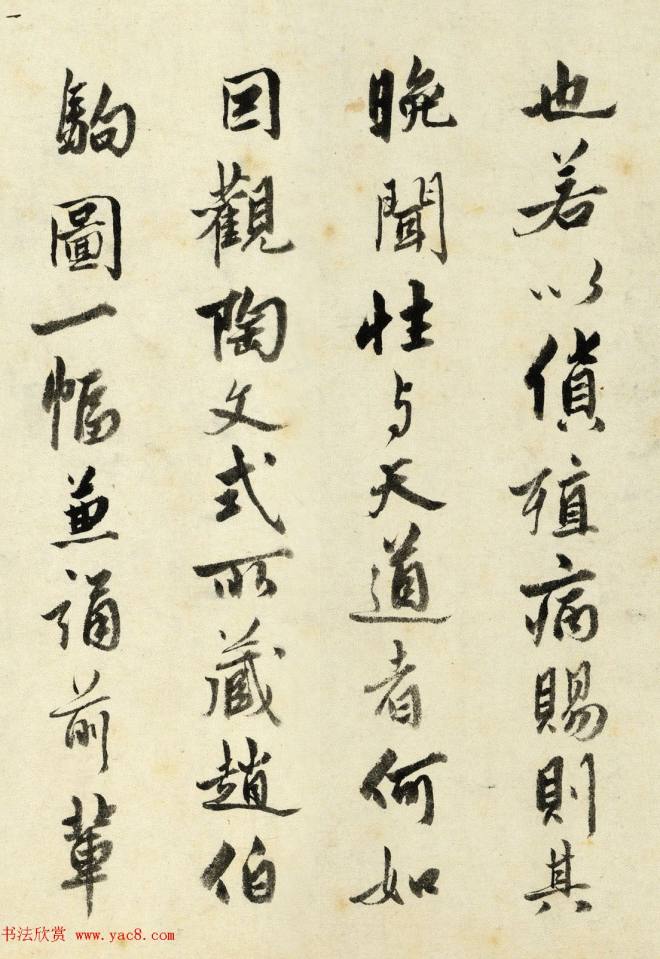 也若以貨殖病賜則其
晩聞性与天道者何如
因觀陶文式所藏趙伯
駒圖一幅兼誦前輩
书法欣赏 www.yac8.com